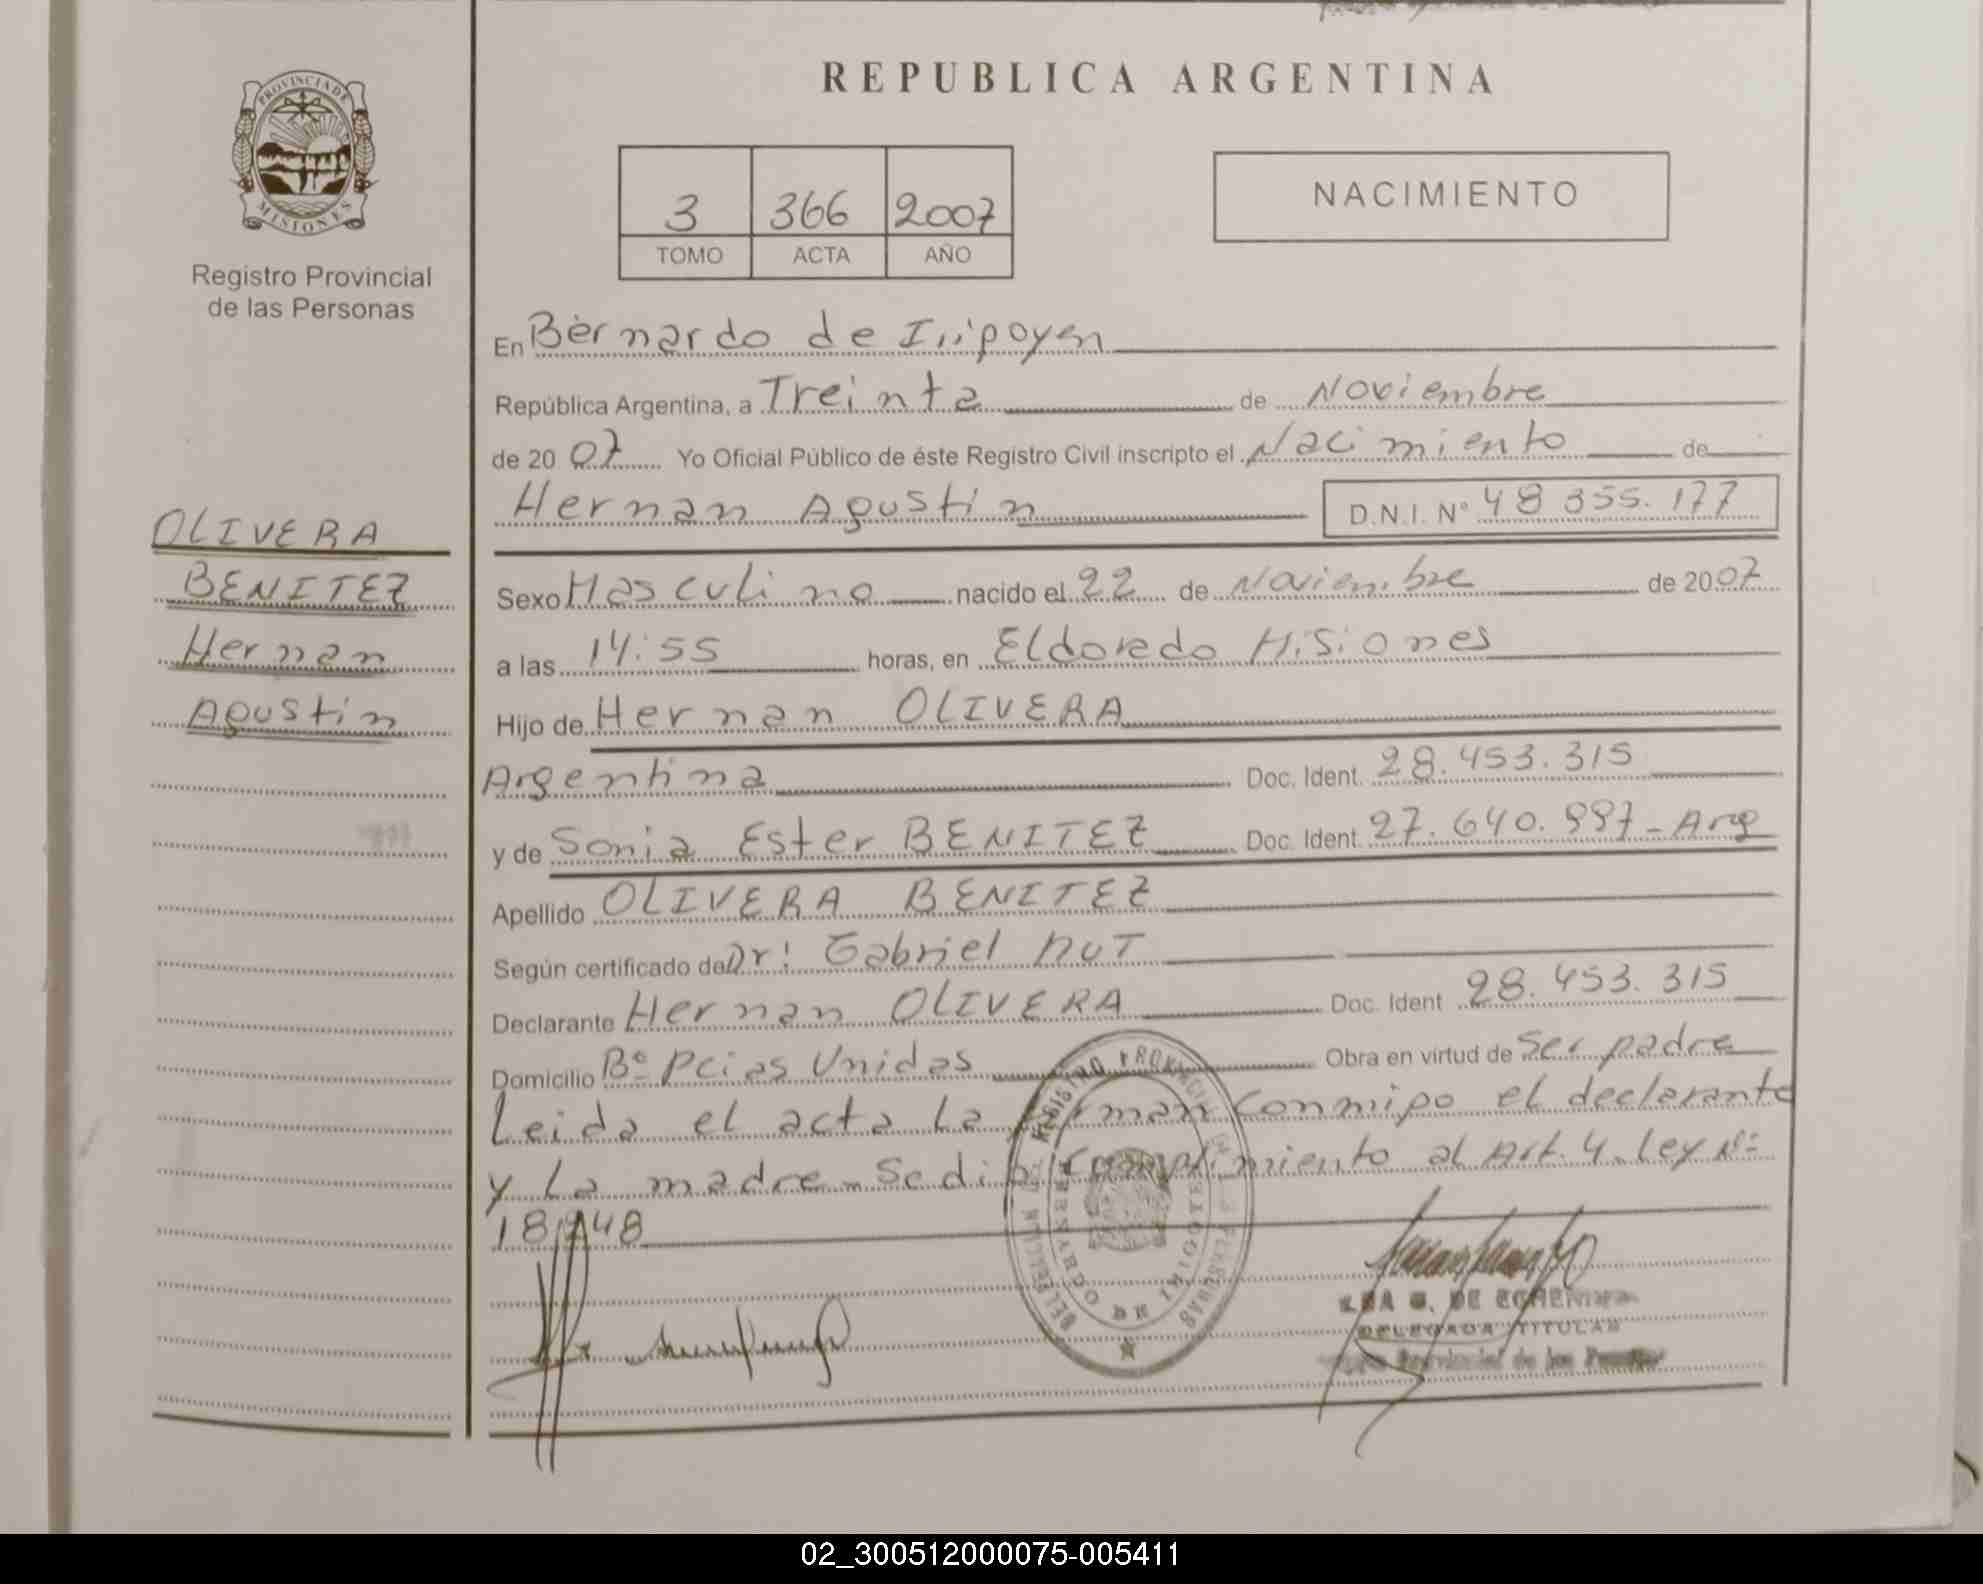 REPUBLICA ARGENTINA
PROVINCIA DE
MISIONES
Registro Provincial
de las Personas
3 366 2007
TOMO ACTA AÑO
NACIMIENTO
En Bernardo de Irigoyen
República Argentina, a Treinta de Noviembre
de 20 07 Yo Oficial Público de éste Registro Civil inscripto el Nacimiento de
Hernan Agustin D.N.I. N° 48 355.177
OLIVERA
BENITEZ
Hernan
Agustin
Sexo Masculino nacido el 22 de Noviembre de 2007
a las 14:55 horas, en Eldorado Misiones
Hijo de Hernan OLIVERA
Argentina Doc. Ident. 28.453.315
y de Sonia Ester BENITEZ Doc. Ident. 27.640.997 - Arg
Apellido OLIVERA BENITEZ
Según certificado de Dr: Gabriel NUT
Declarante Hernan OLIVERA Doc. Ident 28.453.315
Domicilio B° Pcias Unidas Obra en virtud de Ser padre
Leida el acta La firman conmigo el declarante
y La madre - Se dio cumplimiento al Art. 4 - Ley N°
18.248
DE
DELEGADA TITULAR
Provincial de las
02_300512000075-005411